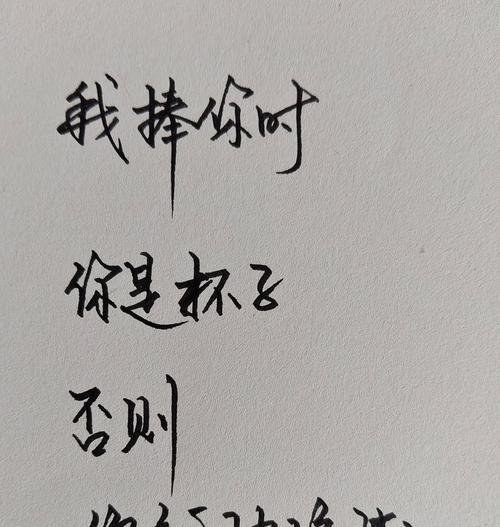 我捧你时
你是杯子
否则